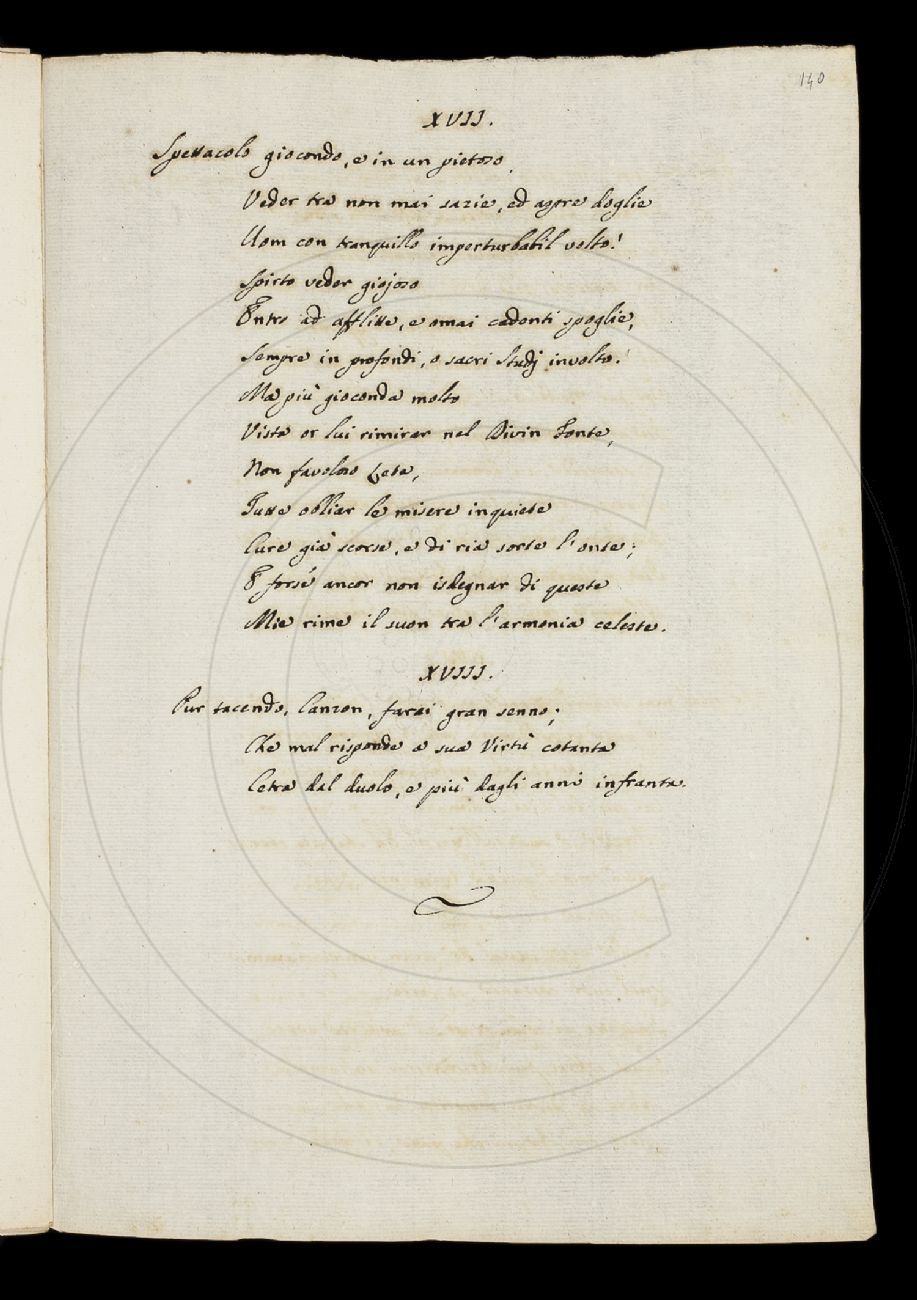 140
XVII.
Spettacolo giocondo, e in un pietoso
Veder tra non mai sazie, ed aspre doglie
Uom con tranquillo imperturbabil volto!
Spirto veder giojoso
Entro ad afflitte, e omai cadenti spoglie,
Sempre in profondi, o sacri Studj involto!
Ma più gioconda molto
Vista or lui rimirar nel Divin Fonte,
Non favoloso Lete,
Tutte obliar le misere inquiete
Cure già scorse, e di ria sorte l'onte;
E forse ancor non isdegnar di queste
Mie rime il suon tra l'armonia celeste.
XVIII.
Pur tacendo, Canzon, farai gran senno;
Che mal risponde a sua Virtù cotanta
Cetra dal duolo, e più dagli anni infranta.